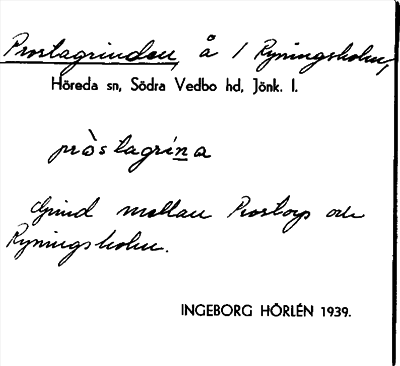 Prostagrinden, å / Ryningsholm,
Höreda sn, Södra Vedbo hd, Jönk. l.
pròstagrina
Grind mellan Prostorp och
Ryningsholm.
INGEBORG HÖRLÉN 1939.